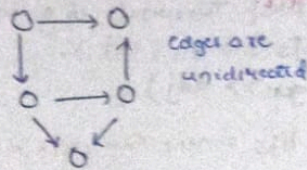 edges are
unidirected